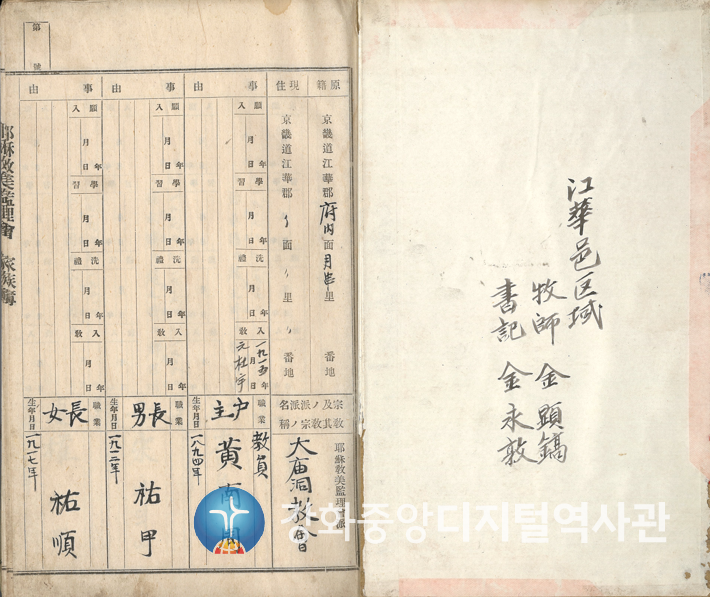 江華邑区域
牧師 金顯鎬
書記 金永敦
原籍 京畿道江華郡府内面月串里 番地
現住 京畿道江華郡〃面〃里〃番地
宗教及其ノ派名
耶穌教美監理會派
大庙洞教會
事由
入願 年月日
學習 年月日
洗禮 年月日
入教 年月日
一九一五
元杜宇
職業 教員
戶主 黃
生年月日 一八九四年
事由
入願 年月日
學習 年月日
洗禮 年月日
入教 年月日
職業
長男 祐甲
生年月日 一九一二年
事由
入願 年月日
學習 年月日
洗禮 年月日
入教 年月日
職業
長女 祐順
生年月日 一九一七年
第 號
耶穌教美監理會 家族
강화중앙디지털역사관